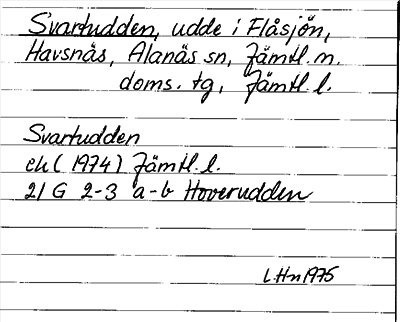 Svartudden, udde i Flåsjön,
Havsnäs, Alanäs sn, Jämtl. n.
doms. tg, Jämtl. l.
Svartudden
ek (1974) Jämtl. l.
21 G 2-3 a-b Hoverudden
L.Hn 1975